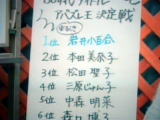 アパズレ王 決定戦
1位 岩井小百合
2位 本田美奈子
3位 松田聖子
4位 三原じゅん子
5位 中森明菜
6位 森口博子